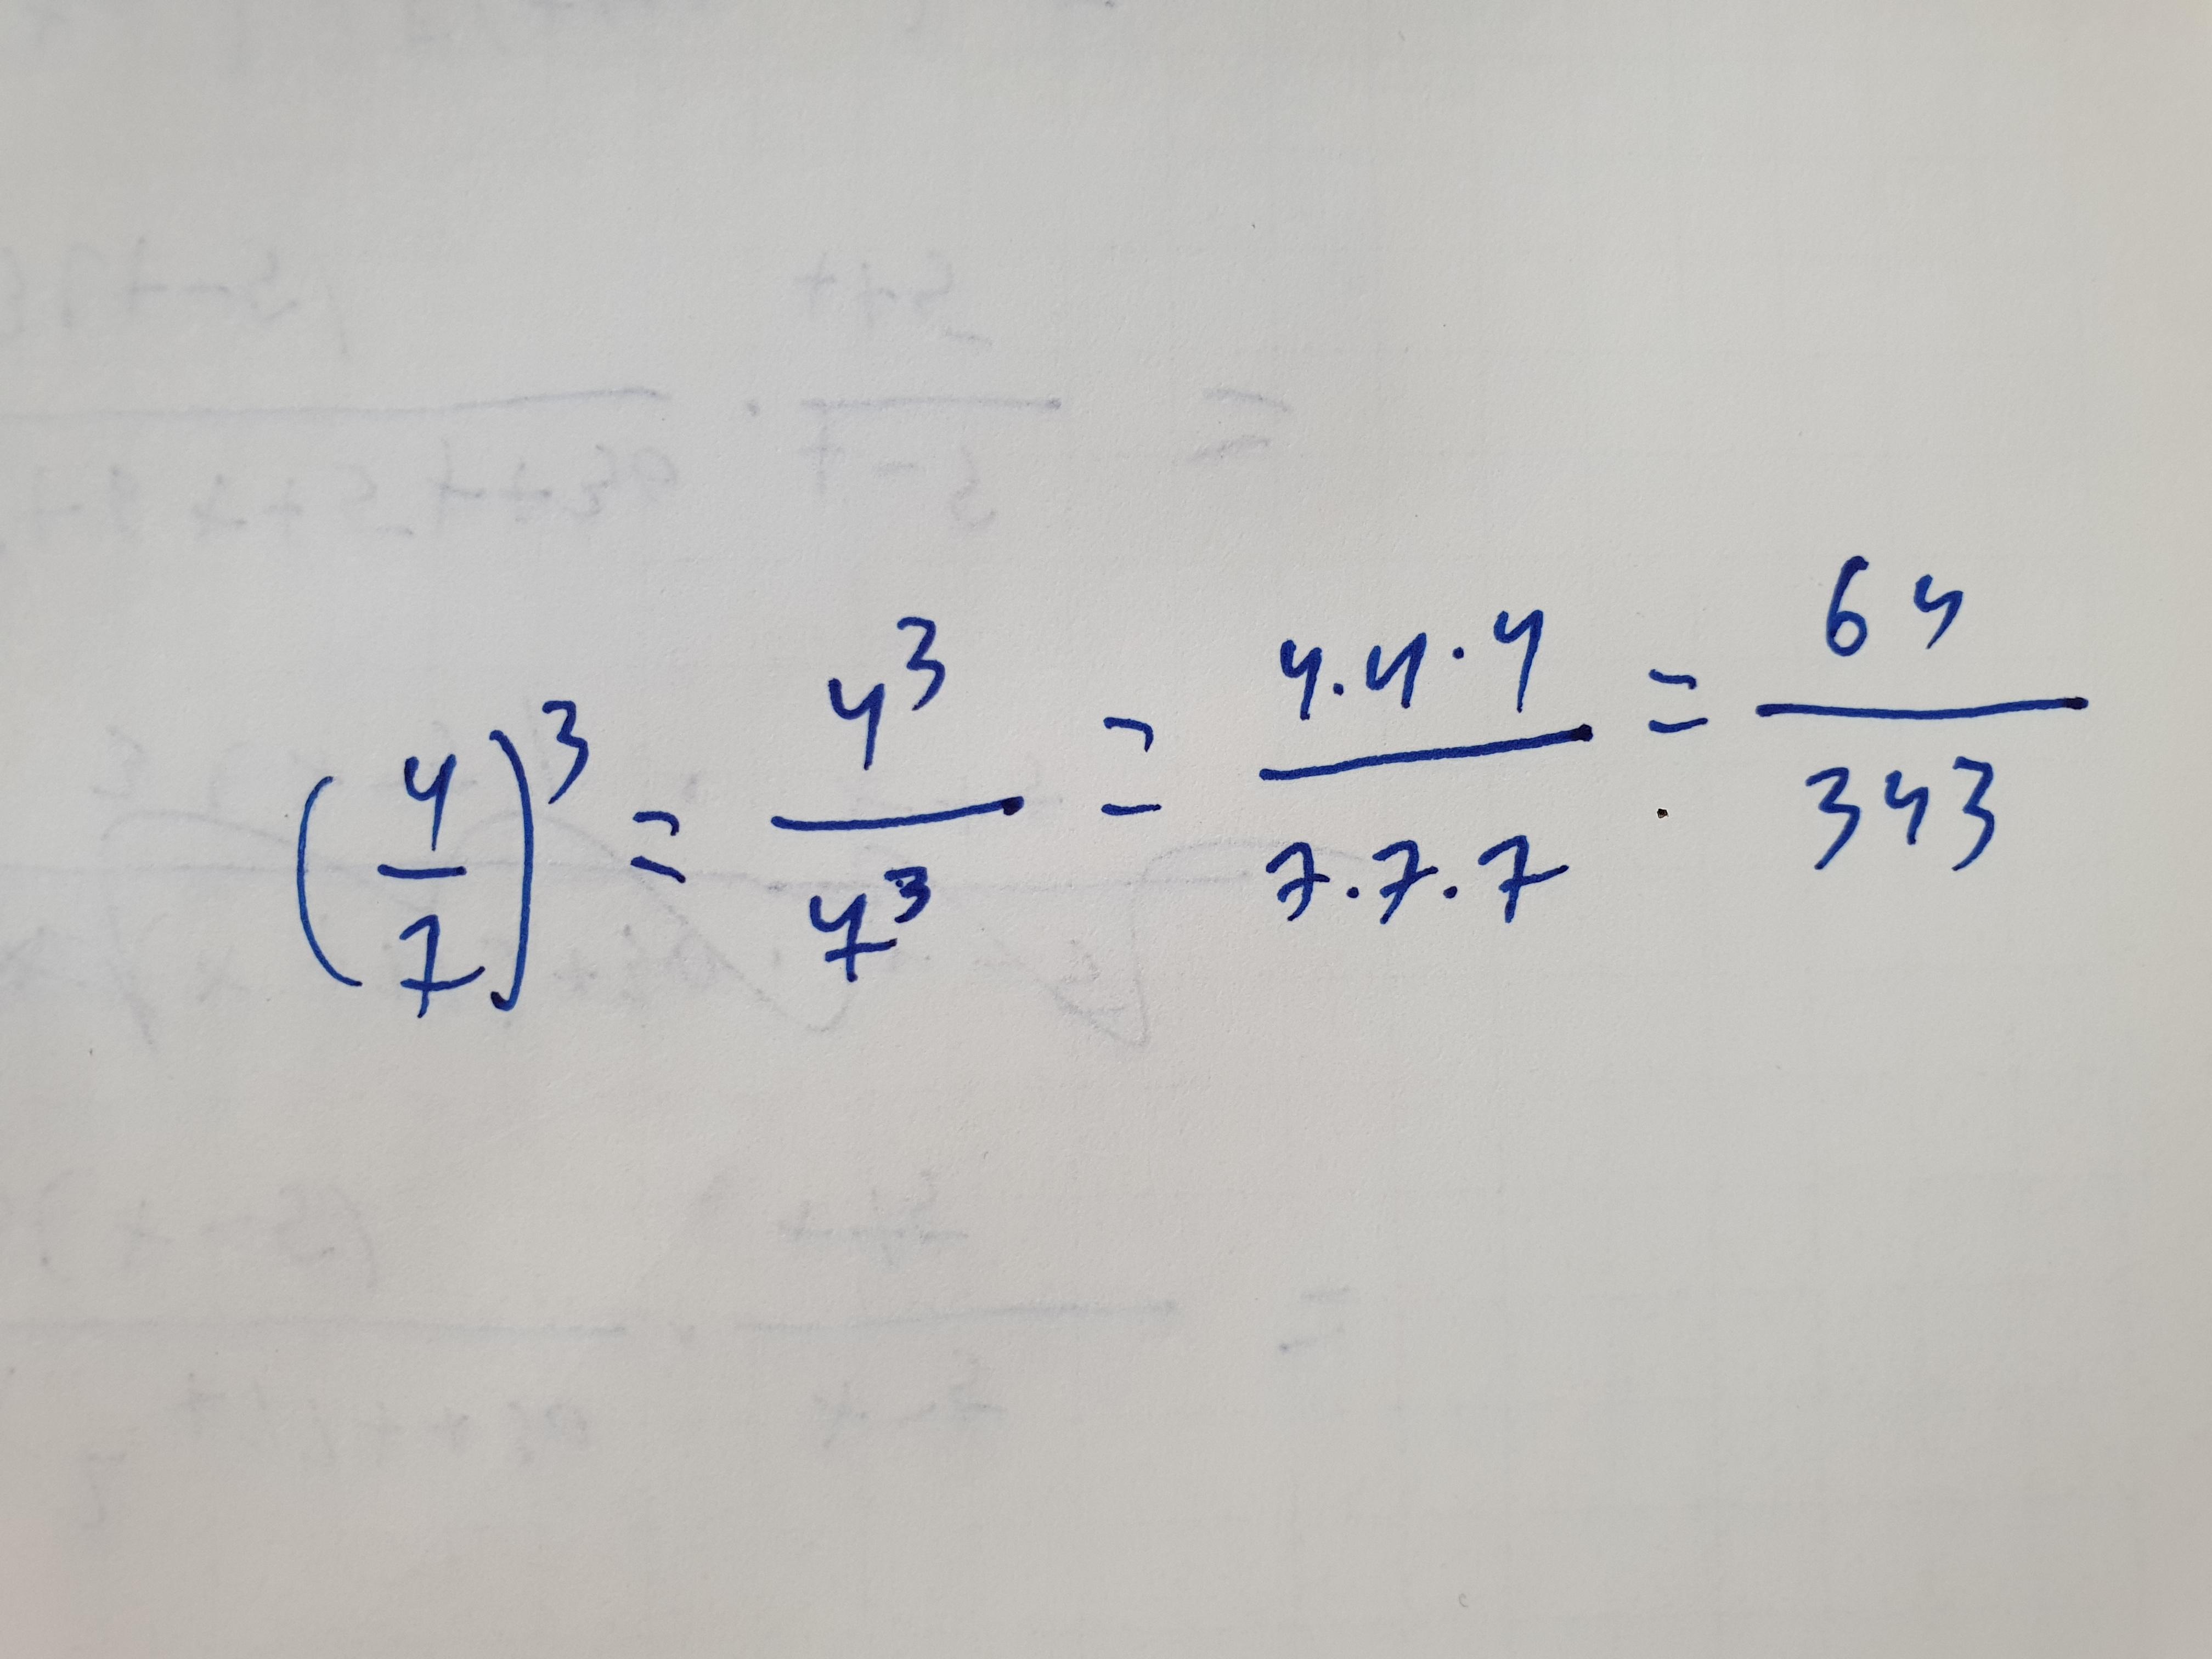 (4/7)³ = 4³/7³ = 4.4.4/7.7.7 = 64/343